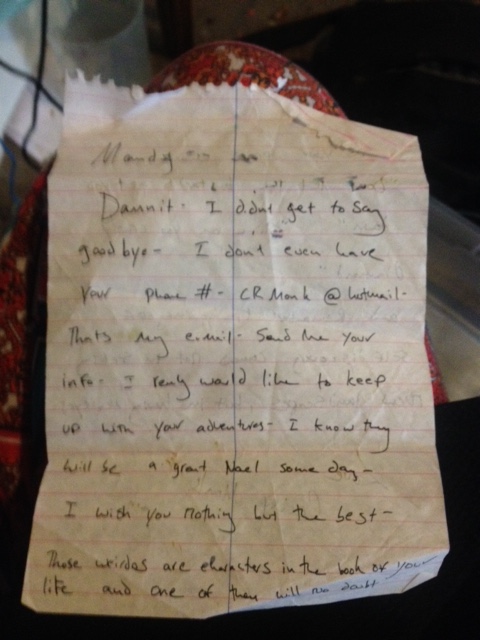 Mandy
Damnit - I didnt get to say
goodbye - I dont even have
your phone # - CRMonk @ hotmail -
Thats my email - Send me your
info - I realy would like to keep
up with your adventures - I know they
will be a great Novel some day -
I wish you nothing but the best -
Those weirdos are characters in the book of your
life and one of them will no doubt